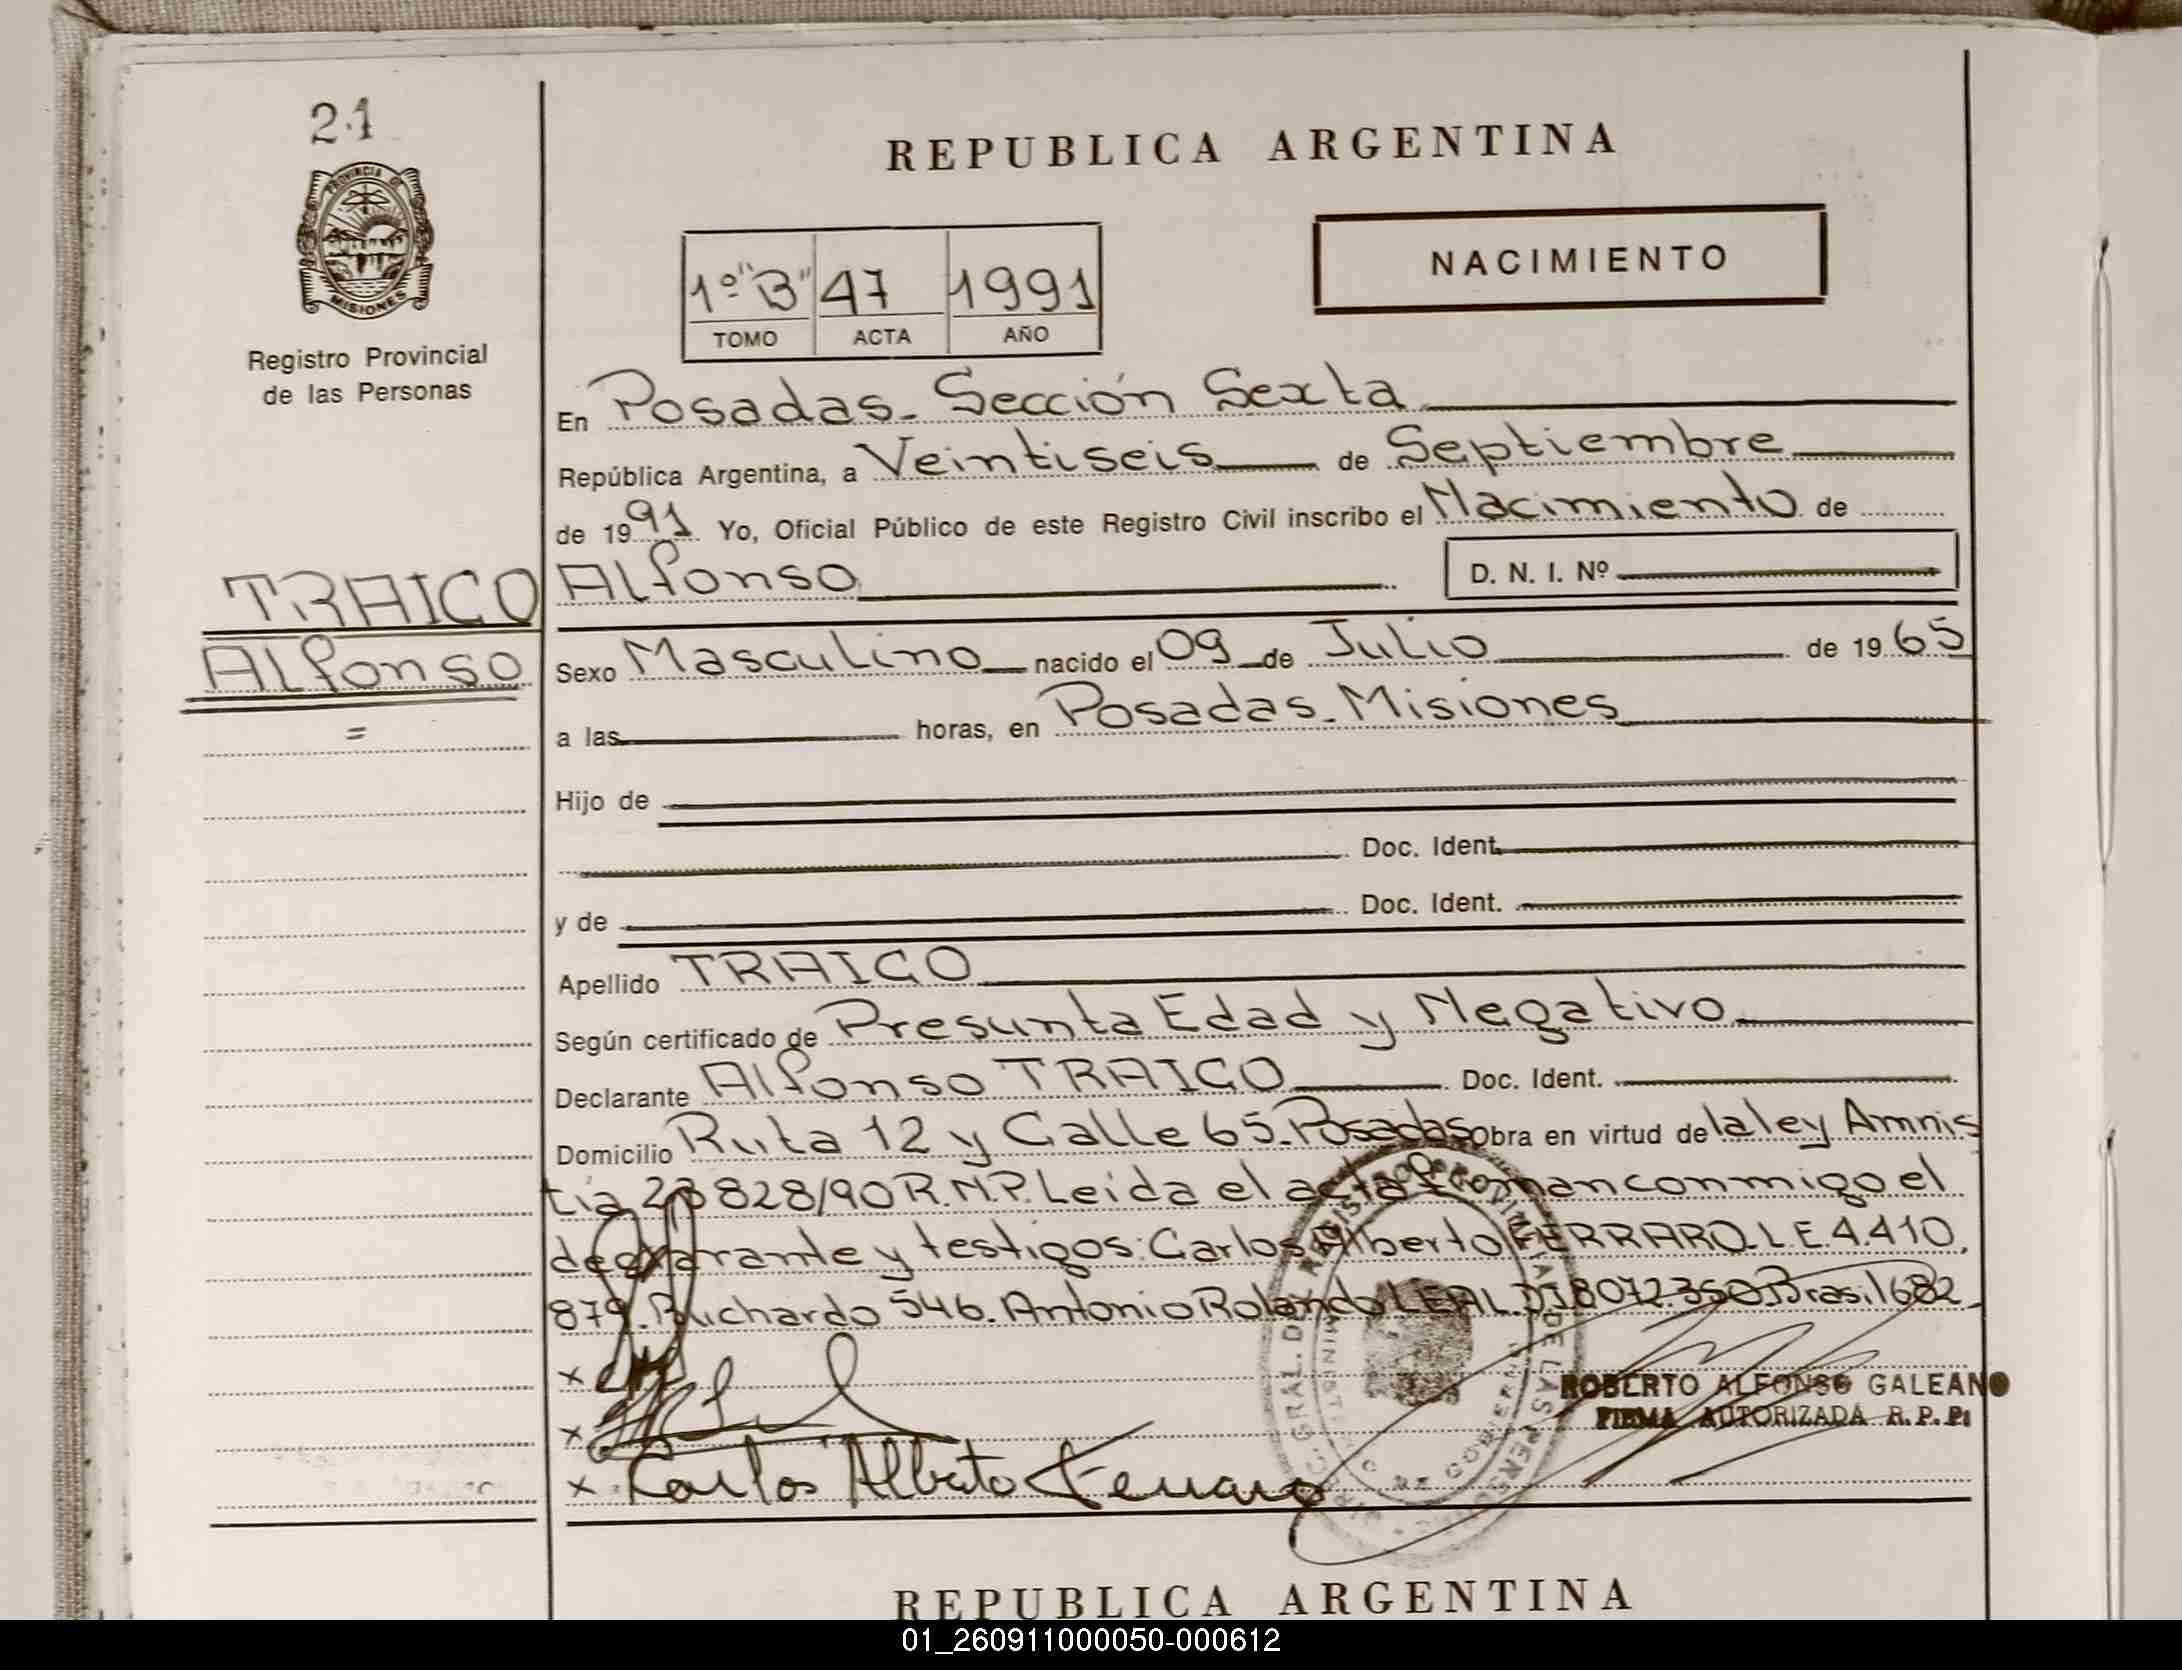 21
PROVINCIA DE
MISIONES
Registro Provincial
de las Personas
REPUBLICA ARGENTINA
1º "B" 47 1991
TOMO ACTA AÑO
NACIMIENTO
En Posadas - Sección Sexta
República Argentina, a Veintiseis de Septiembre
de 1991 Yo, Oficial Público de este Registro Civil inscribo el Nacimiento de
TRAICO
Alfonso
Alfonso
D. N. I. Nº
Sexo Masculino nacido el 09 de Julio de 1965
a las horas, en Posadas - Misiones
Hijo de
Doc. Ident.
y de Doc. Ident.
Apellido TRAICO
Según certificado de Presunta Edad y Negativo
Declarante Alfonso TRAICO Doc. Ident.
Domicilio Ruta 12 y Calle 65. Posadas Obra en virtud de la ley Amnis
tia 23828/90 R.N.P. Leida el acta firman conmigo el
declarante y testigos: Carlos Alberto FERRARO L.E 4.410.
879. Buchardo 546. Antonio Rolando LEAL DI 8072.350 Brasil 682
x
x
x Carlos Alberto Ferraro
ROBERTO ALFONSO GALEANO
FIRMA AUTORIZADA R. P. P.
REPUBLICA ARGENTINA
01_260911000050-000612